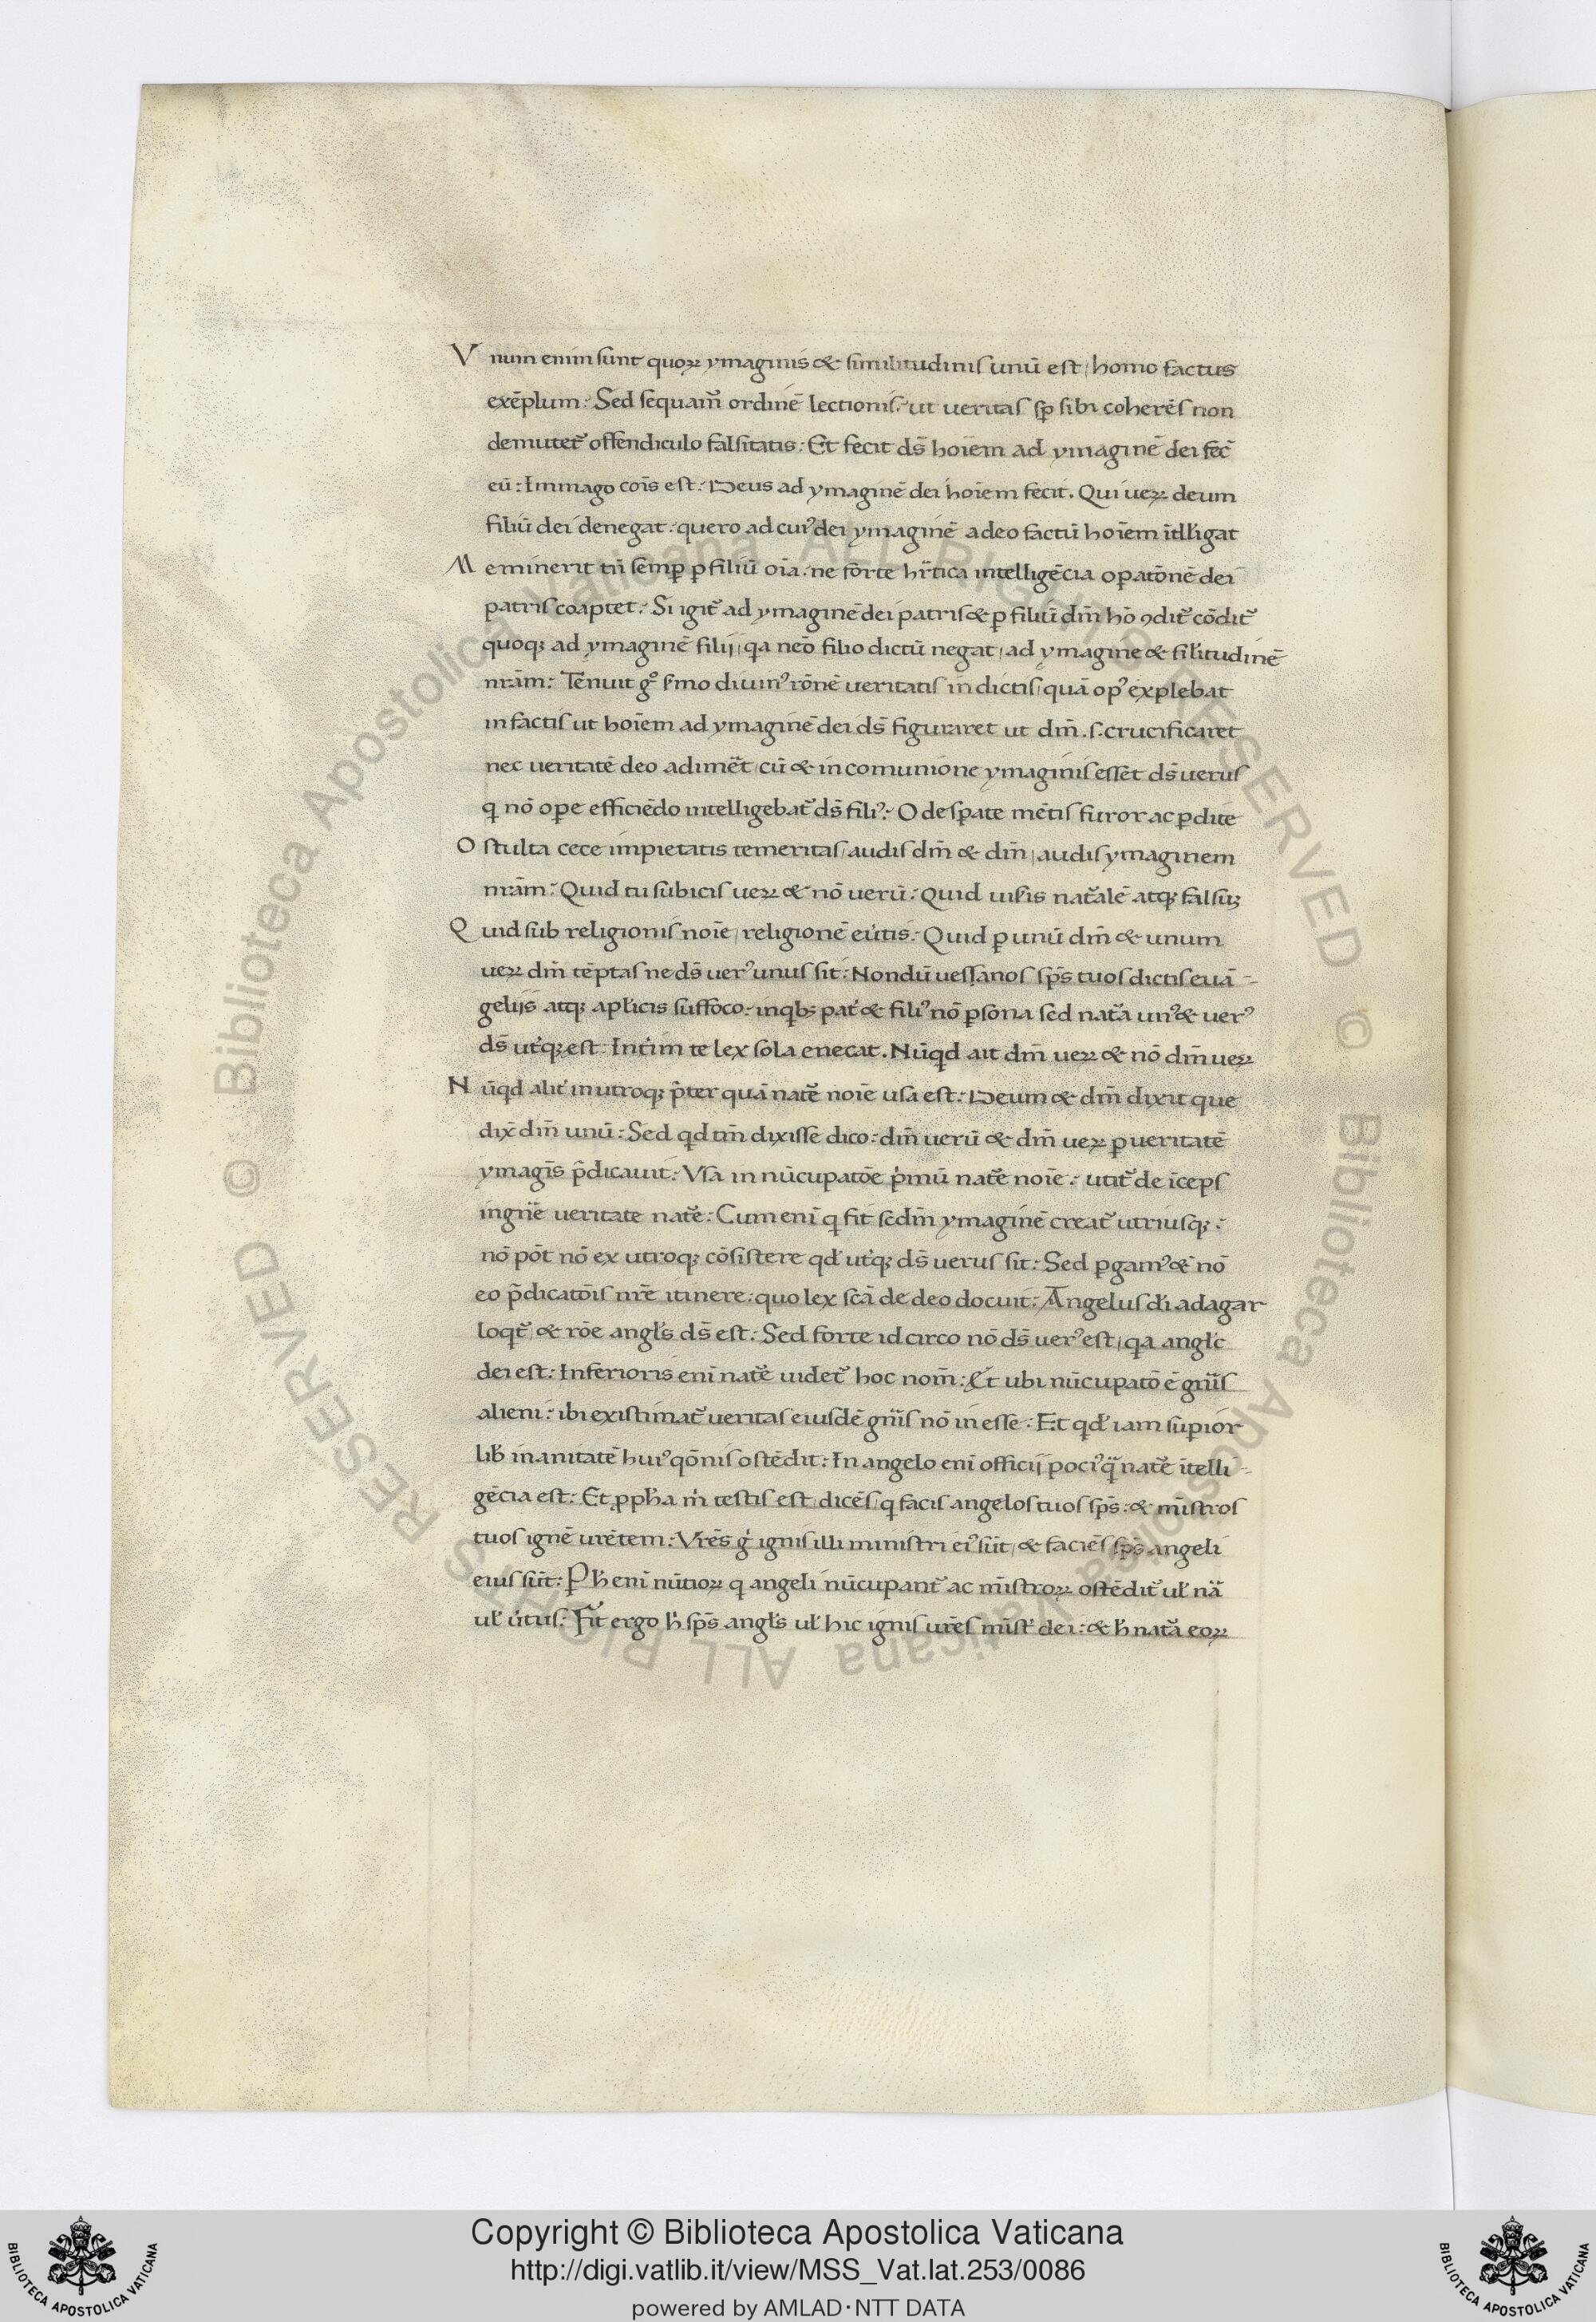 Vnum enim sunt quoꝝ ymaginis & similitudinis unū est, homo factus
exēplum: Sed sequam̃ ordinē lectionis: ut veritas sꝑ sibi coherēs non
demutet᷑ offendiculo falsitatis: Et fecit ds̄ hoīem ad ymaginē dei fec̄
eū: Immago cōis est: Deus ad ymaginē dei hoīem fecit. Qui ueꝝ deum
filiū dei denegat: quero ad cuiꝰ dei ymaginē adeo factū hoīem ītll'igat
Meminerit tn̄ semꝑ ꝑ filiū oīa: ne forte hr̄tica intelligēcia oꝑatōnē dei
patris coaptet: Si igit᷑ ad ymaginē dei patris & ꝑ filiū dm̄ hō ꝯdit᷑ cōdit᷑
quoqꝫ ad ymaginē filij, qa neō filio dictū negat, ad ymagine & sil'itudinē
nrām: Tenuit gͦ s'mo diuinꝰ rōnē veritatis in dictis, quā opꝰ explebat
in factis ut hoīem ad ymaginē dei ds̄ figuraret ut dm̄ .s. crucificaret
nec veritatē deo adimēt, cū & in comunione ymaginis essēt ds̄ verus
q nō oꝑe efficiēdo intelligebat᷑ ds̄ filiꝰ: O desꝑate mētis furor ac ꝑdite
O stulta cece impietatis temeritas, audis dm̄ & dm̄, audis ymaginem
nrām: Quid tu subicis ueꝝ & nō verū: Quid uis'is nat᷑alē atqꝫ falsuꝫ
Quid sub religionis noīe, religionē eu'tis: Quid ꝑ unū dm̄ & unum
ueꝝ dm̄ tēptas ne ds̄ verꝰ unus sit: Nondū vessanos sp̄s tuos dictis euā-
gelijs atqꝫ apl'icis suffoco: inqbꝫ pat' & filiꝰ nō ꝑsona sed nat᷑a unꝰ & verꝰ
ds̄ ut'qꝫ est: Int'im te lex sola enecat. Nūqd ait dm̄ ueꝝ & nō dm̄ ueꝝ
Nūqd alit' in utroqꝫ p̄ter quā nat᷑e noīe usa est: Deum & dm̄ dixit que
dix̄ dm̄ unū: Sed qd tm̄ dixisse dico: dm̄ uerū & dm̄ ueꝝ ꝑ veritatē
ymagīs p̄dicauit: Vsa in nūcupatōe p'mū nat᷑e noīe: utit᷑ de īceps
ingn̄e veritate nat᷑e: Cum enī q fit scdm̄ ymaginē creat᷑ utriusqꝫ:
nō pōt nō ex utroqꝫ cōsistere qd' ut'qꝫ ds̄ verus sit: Sed ꝑgamꝰ & nō
eo p̄dicatōis nr̄e itinere: quo lex scā de deo docuit: Angelus d'i adagar
loqt᷑, & rōe angl's ds̄ est: Sed forte idcirco nō ds̄ verꝰ est, qa angl'c
dei est: Inferioris enī nat᷑e uidet᷑ hoc nom̄: Et ubi nūcupatō ē gn̄is
alieni: ibi existimat᷑ veritas eiusdē gn̄is nō inesse: Et qd' iam suꝑior
lib' inanitatē huiꝰ qōnis ostēdit: In angelo enī officij pociꝰ q̄ nat᷑e ītelli-
gēcia est: Et ꝓph'a m' testis est, dicēs, q facis angelos tuos sp̄s: & mīstros
tuos ignē urētem: Vrēs g' ignis illi ministri eiꝰ sūt, & faciēs sp̄s angeli
eius sūt: P h' enī nūtioꝝ q angeli nūcupant᷑ ac mīstroꝝ ostēdit᷑ ul' nā
ul' u'tus: Fit ergo h' sp̄s angl's ul' hic ignis urēs mīst' dei: & h' nat᷑a eoꝝ
Copyright © Biblioteca Apostolica Vaticana
http://digi.vatlib.it/view/MSS_Vat.lat.253/0086
powered by AMLAD·NTT DATA
BIBLIOTECA APOSTOLICA VATICANA
BIBLIOTECA APOSTOLICA VATICANA
© Biblioteca Apostolica Vaticana ALL RIGHTS RESERVED © Biblioteca Apostolica Vaticana ALL RIGHTS RESERVED